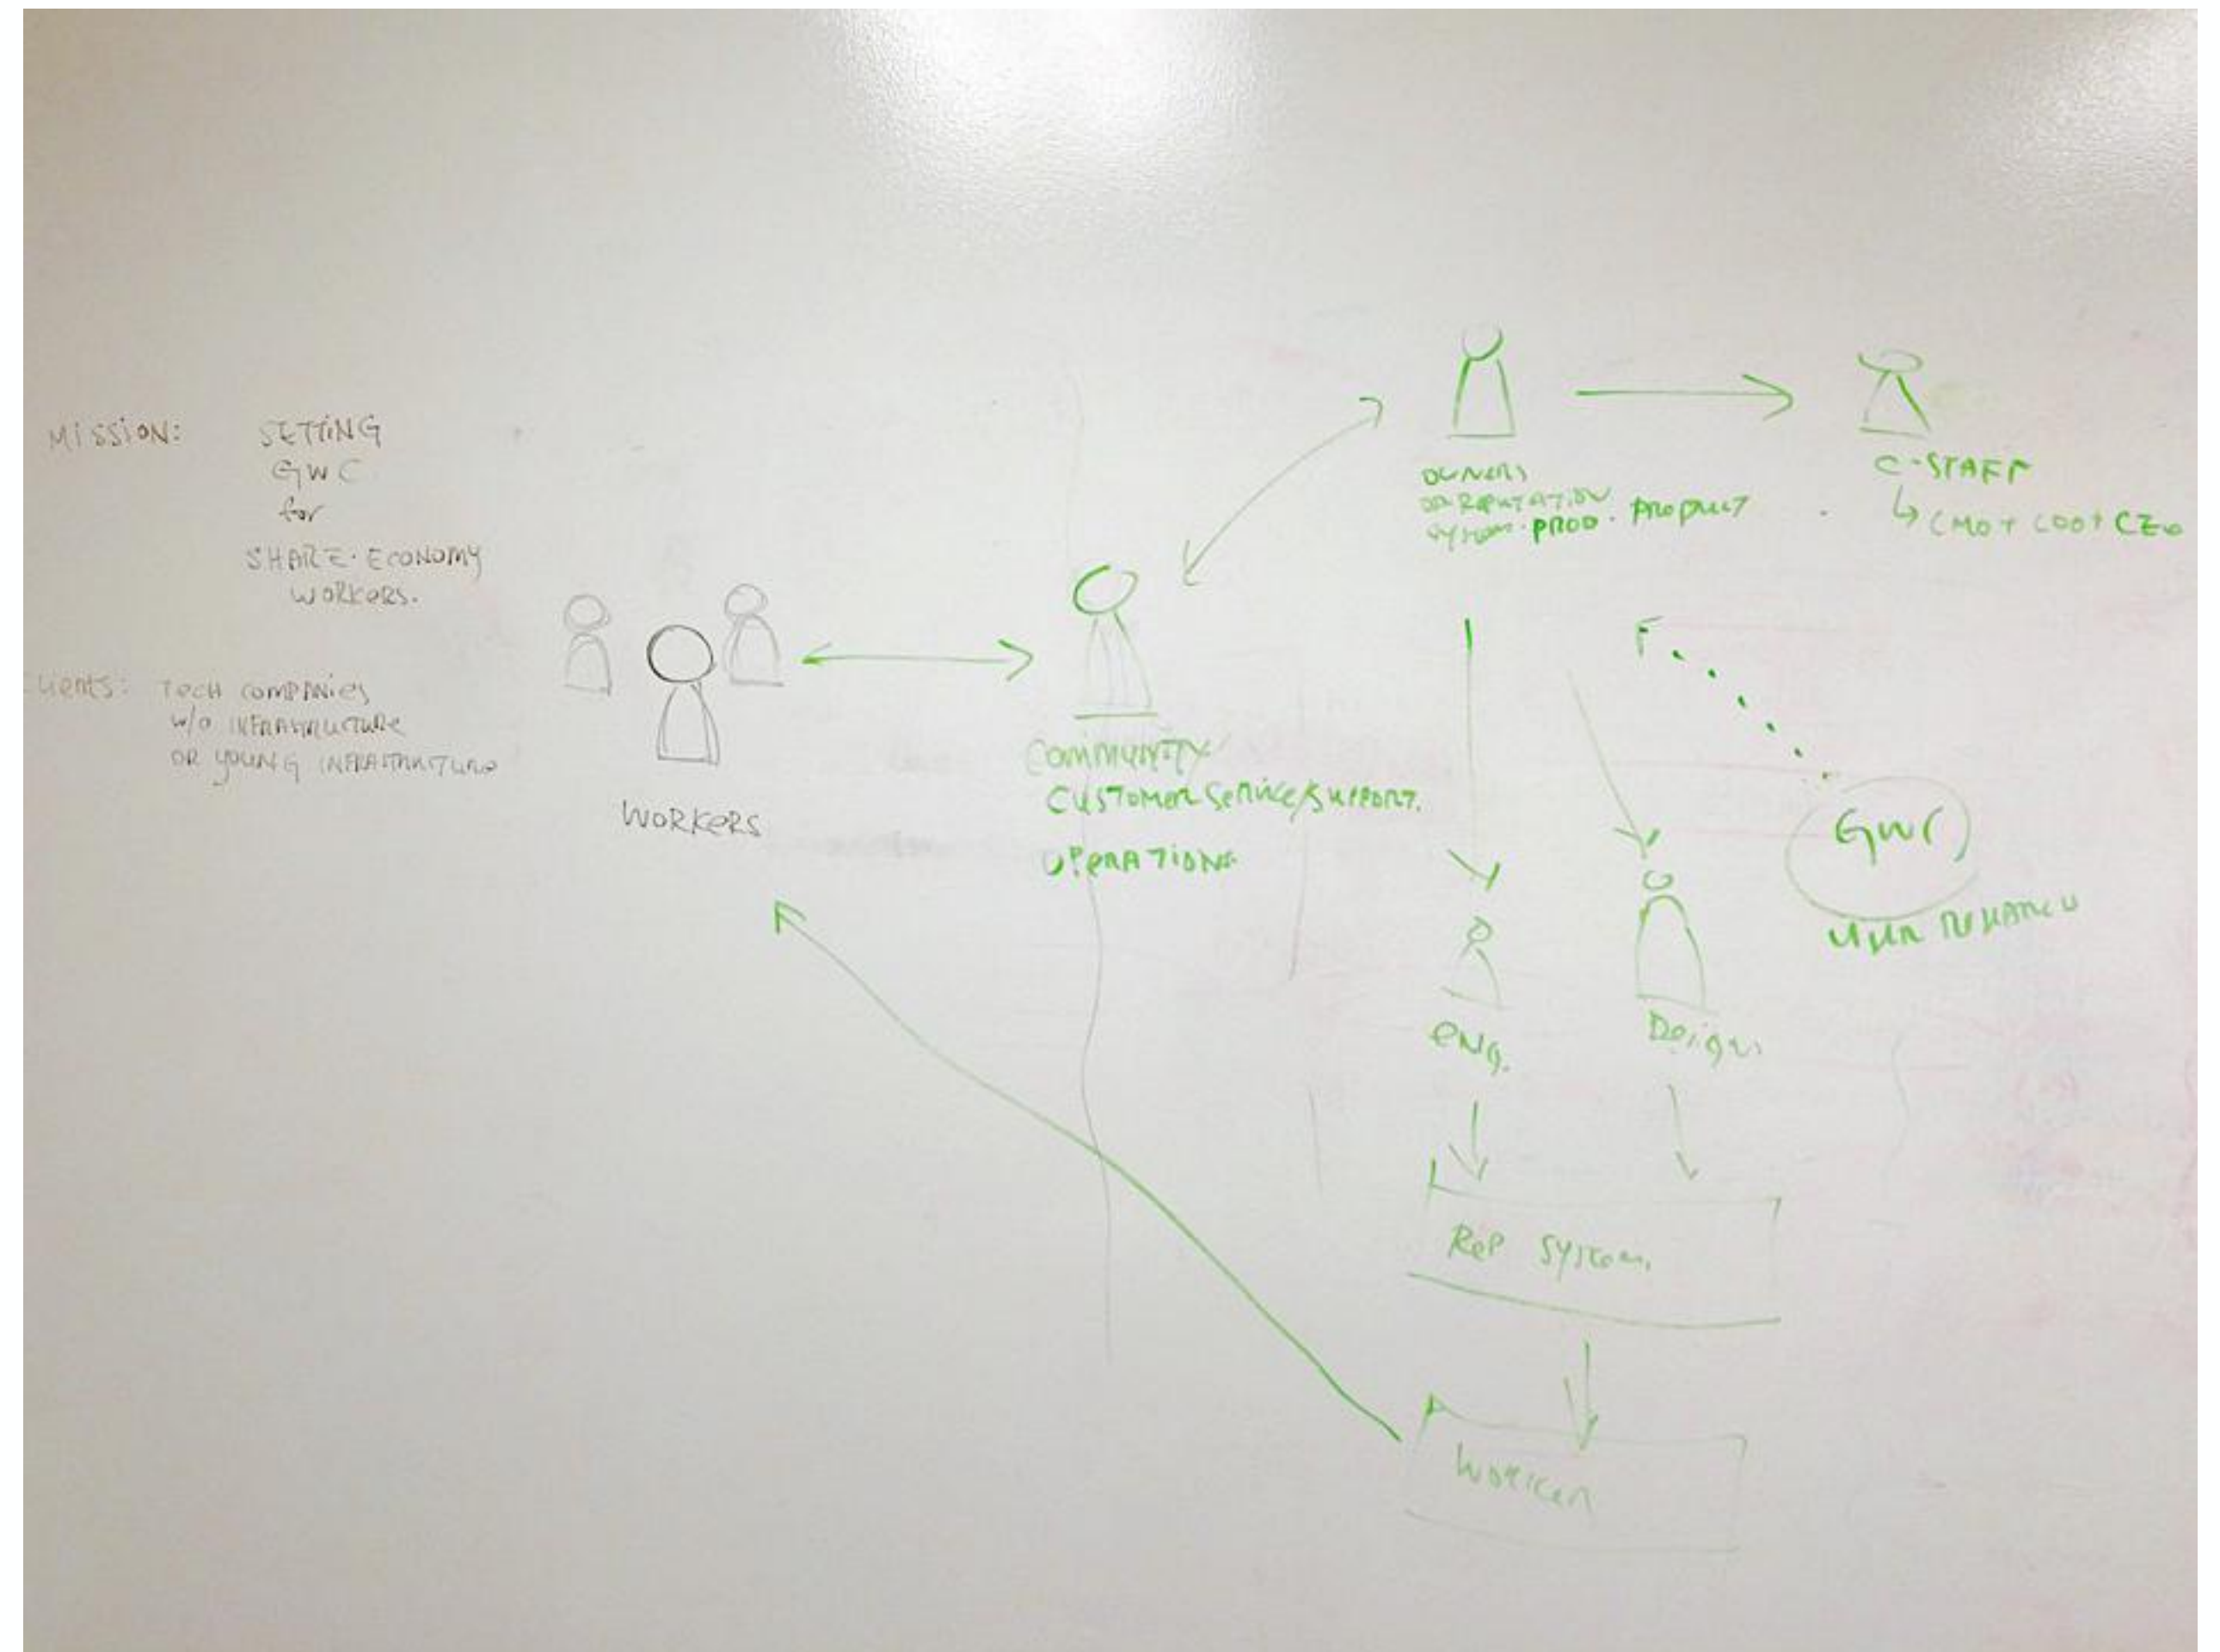 MISSION: SETTING
GWC
for
SHARE·ECONOMY
WORKERS.
lients: TECH COMPANIES
w/o INFRASTRUCTURE
OR YOUNG INFRASTRUCTURE
WORKERS
COMMUNITY
CUSTOMER SERVICE/SUPPORT.
OPERATIONS
OWNERS
REPUTATION
SYSTEM·PROD·PRODUCT
C-STAFF
CMO + COO + CEO
GWC
ENG.
Design
REP SYSTEM.
WORKER